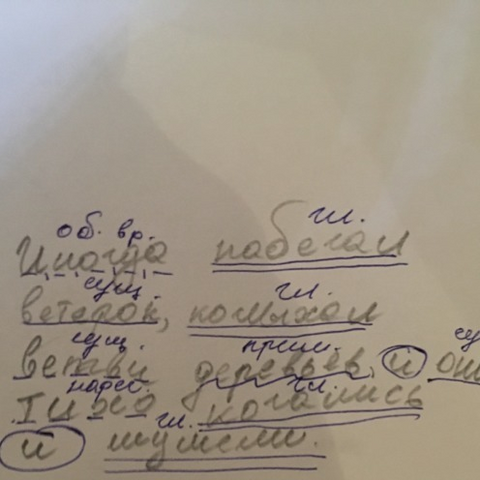 об. вр. гл.
Иногда набегал
сущ. гл.
ветерок, колыхал
сущ. прил. су
ветви деревьев, и они
нареч. гл.
тихо качались
гл.
и шумели.